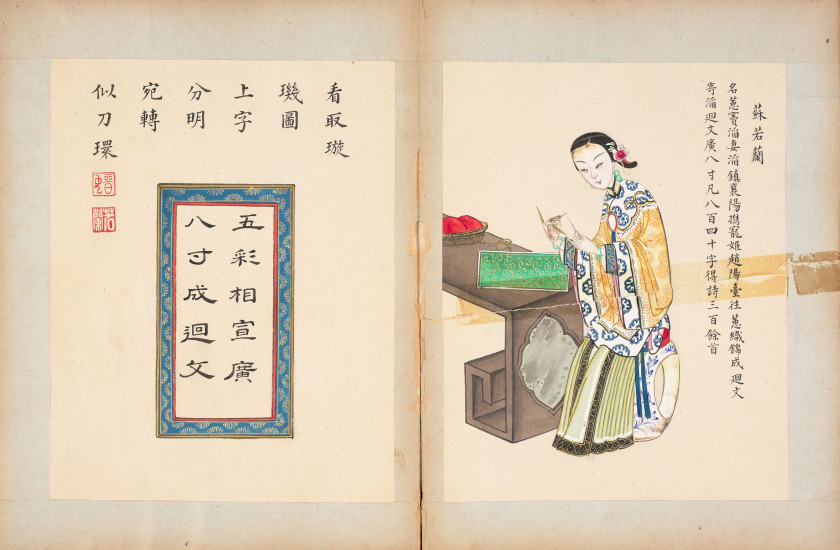 蘇若蘭
名蕙竇滔妻滔鎮襄陽携寵姬趙陽臺往蕙織錦成廻文
寄滔廻文廣八寸凡八百四十字得詩三百餘首
看取璇
璣圖
上字
分明
宛轉
似刀環
五彩相宣廣
八寸成迴文